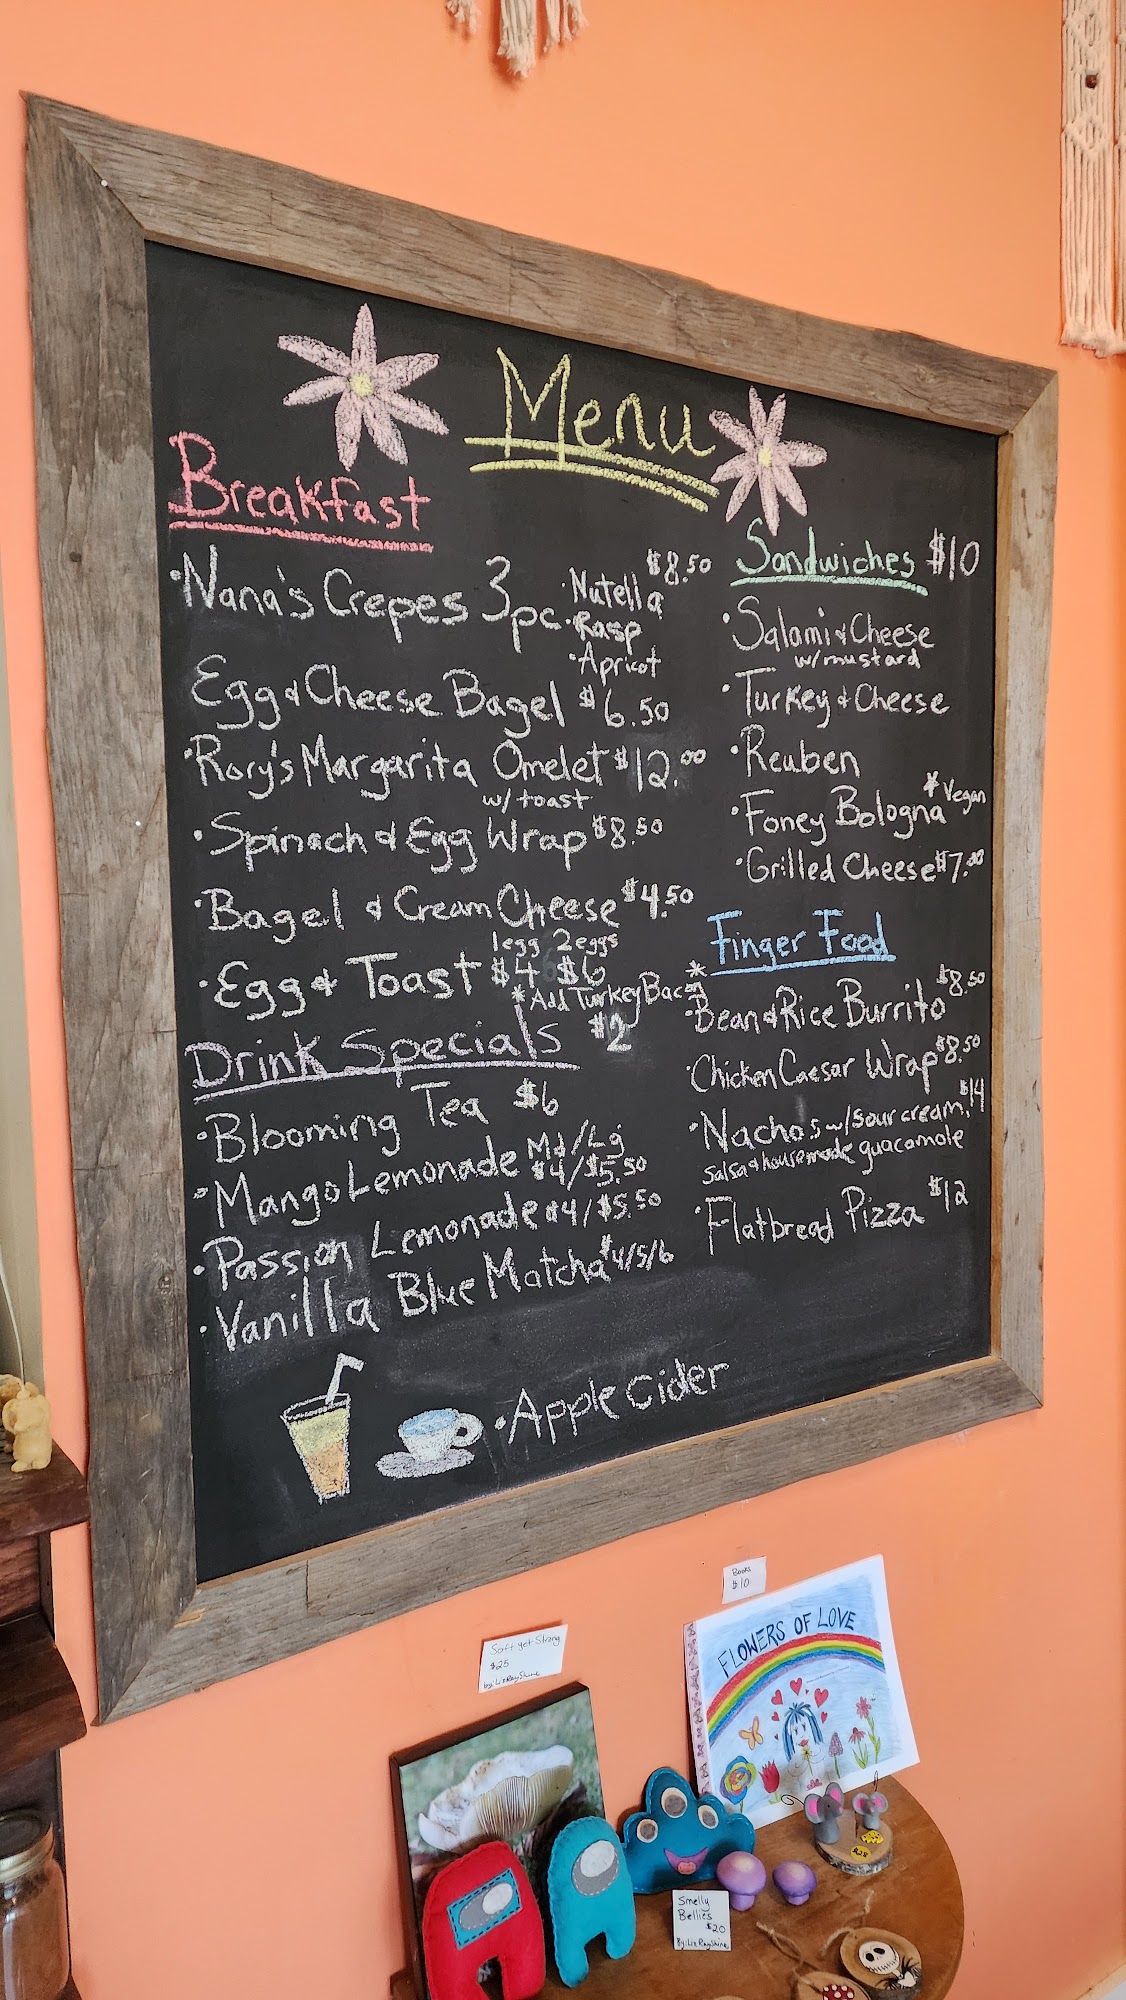 Menu
Breakfast
·Nana's Crepes 3pc.
$8.50
·Nutella
·Rasp
·Apricot
Egg & Cheese Bagel $6.50
·Rory's Margarita Omelet $12.00
w/ toast
·Spinach & Egg Wrap $8.50
·Bagel & Cream Cheese $4.50
1egg 2eggs
·Egg & Toast $4 $6
*Add Turkey Bacon*
$2
Drink Specials
·Blooming Tea $6
Md/Lg
·Mango Lemonade $4/$5.50
·Passion Lemonade $4/$5.50
·Vanilla Blue Matcha $4/5/6
·Apple Cider
Sandwiches $10
·Salami & Cheese
w/ mustard
·Turkey & Cheese
·Reuben
·Foney Bologna *Vegan
·Grilled Cheese $7.00
Finger Food
·Bean & Rice Burrito $8.50
·Chicken Caesar Wrap $8.50
·Nachos w/ sour cream, $14
salsa & housemade guacamole
·Flatbread Pizza $12
Books
$10
Soft yet Strong
$25
by: Liz Ray Shine
FLOWERS OF LOVE
Smelly
Bellies
$20
By: Liz Ray Shine